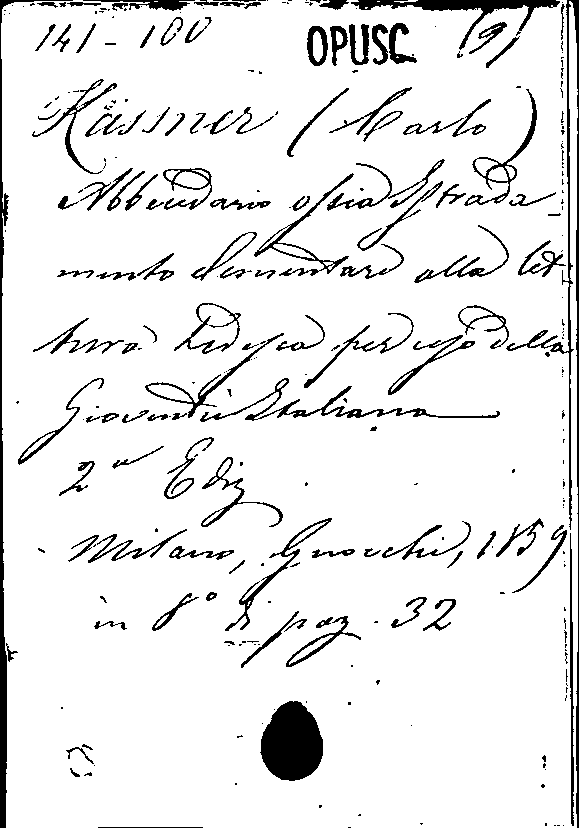 141 - 100 OPUSC (9)
Kässner (Carlo)
Abbecedario ossia Istrada-
mento elementare alla let-
tura tedesca per uso della
Gioventù Italiana
2a Ediz
Milano, Gnocchi, 1859
in 8° di pag. 32